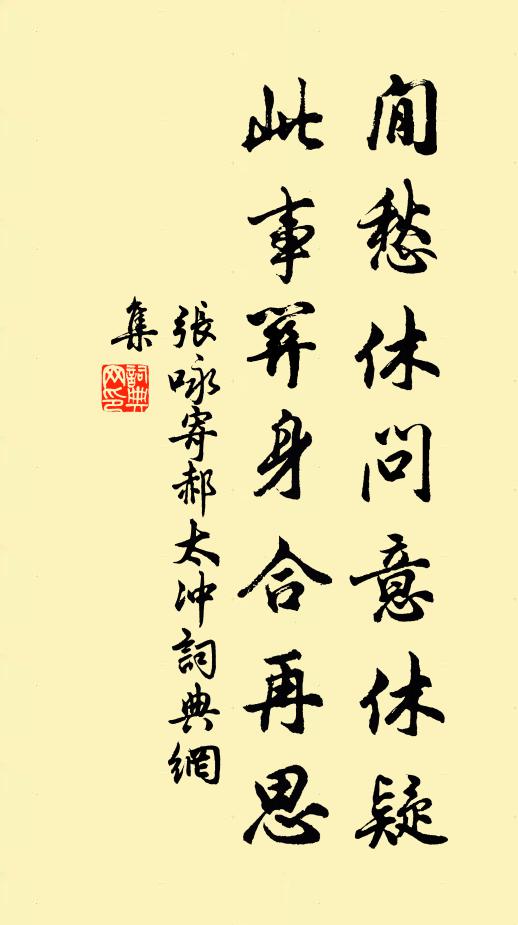 閒愁休問意休疑
此事關身合再思
張咏寄郝太冲詞典網
集
詞典
网印